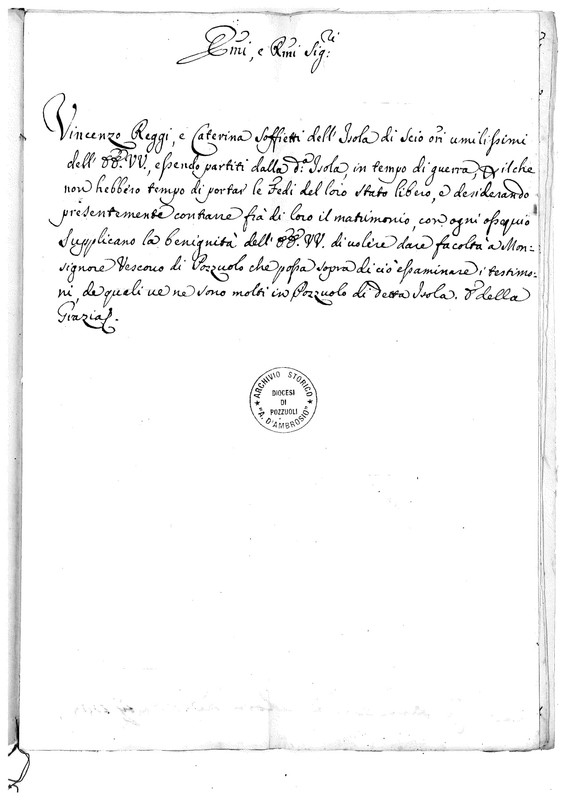 Emi, e Rmi Sig:ri
Vincenzo Reggi, e Caterina Soffietti dell'Isola di Scio ori umilissimi
dell' EE: VV, essendo partiti dalla d:a Isola, in tempo di guerra, p ilche
non hebbero tempo di portar le Fedi del loro stato libero, e desiderando
presentemente contraere frà di loro il matrimonio, con ogni ossequio
supplicano la benignità dell' EE: VV. di volere dare facoltà a Mon=
signore Vescovo di Pozzuolo che possa sopra di ciò essaminare i testimo=
ni, de quali ve ne sono molti in Pozzuolo di detta Isola. E della
Grazia
ARCHIVIO STORICO
DIOCESI
DI
POZZUOLI
"A. D'AMBROSIO"